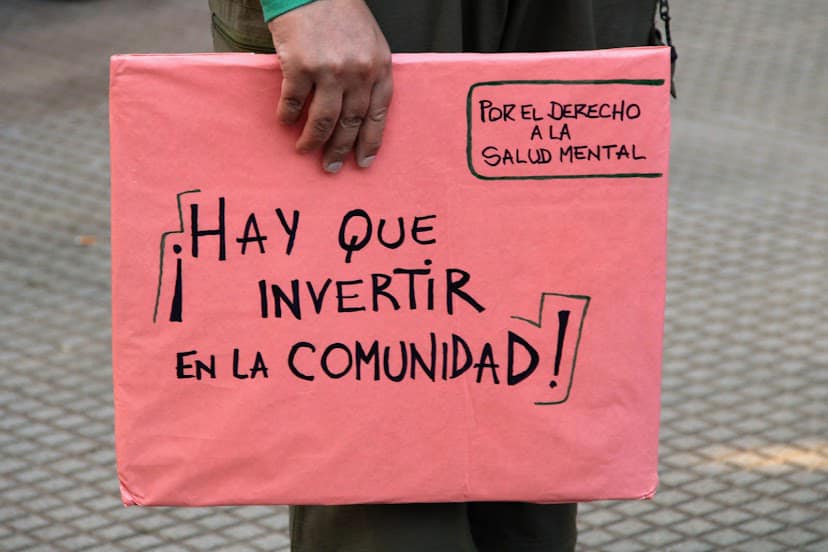 POR EL DERECHO
A LA
SALUD MENTAL
¡HAY QUE
INVERTIR
EN LA COMUNIDAD!